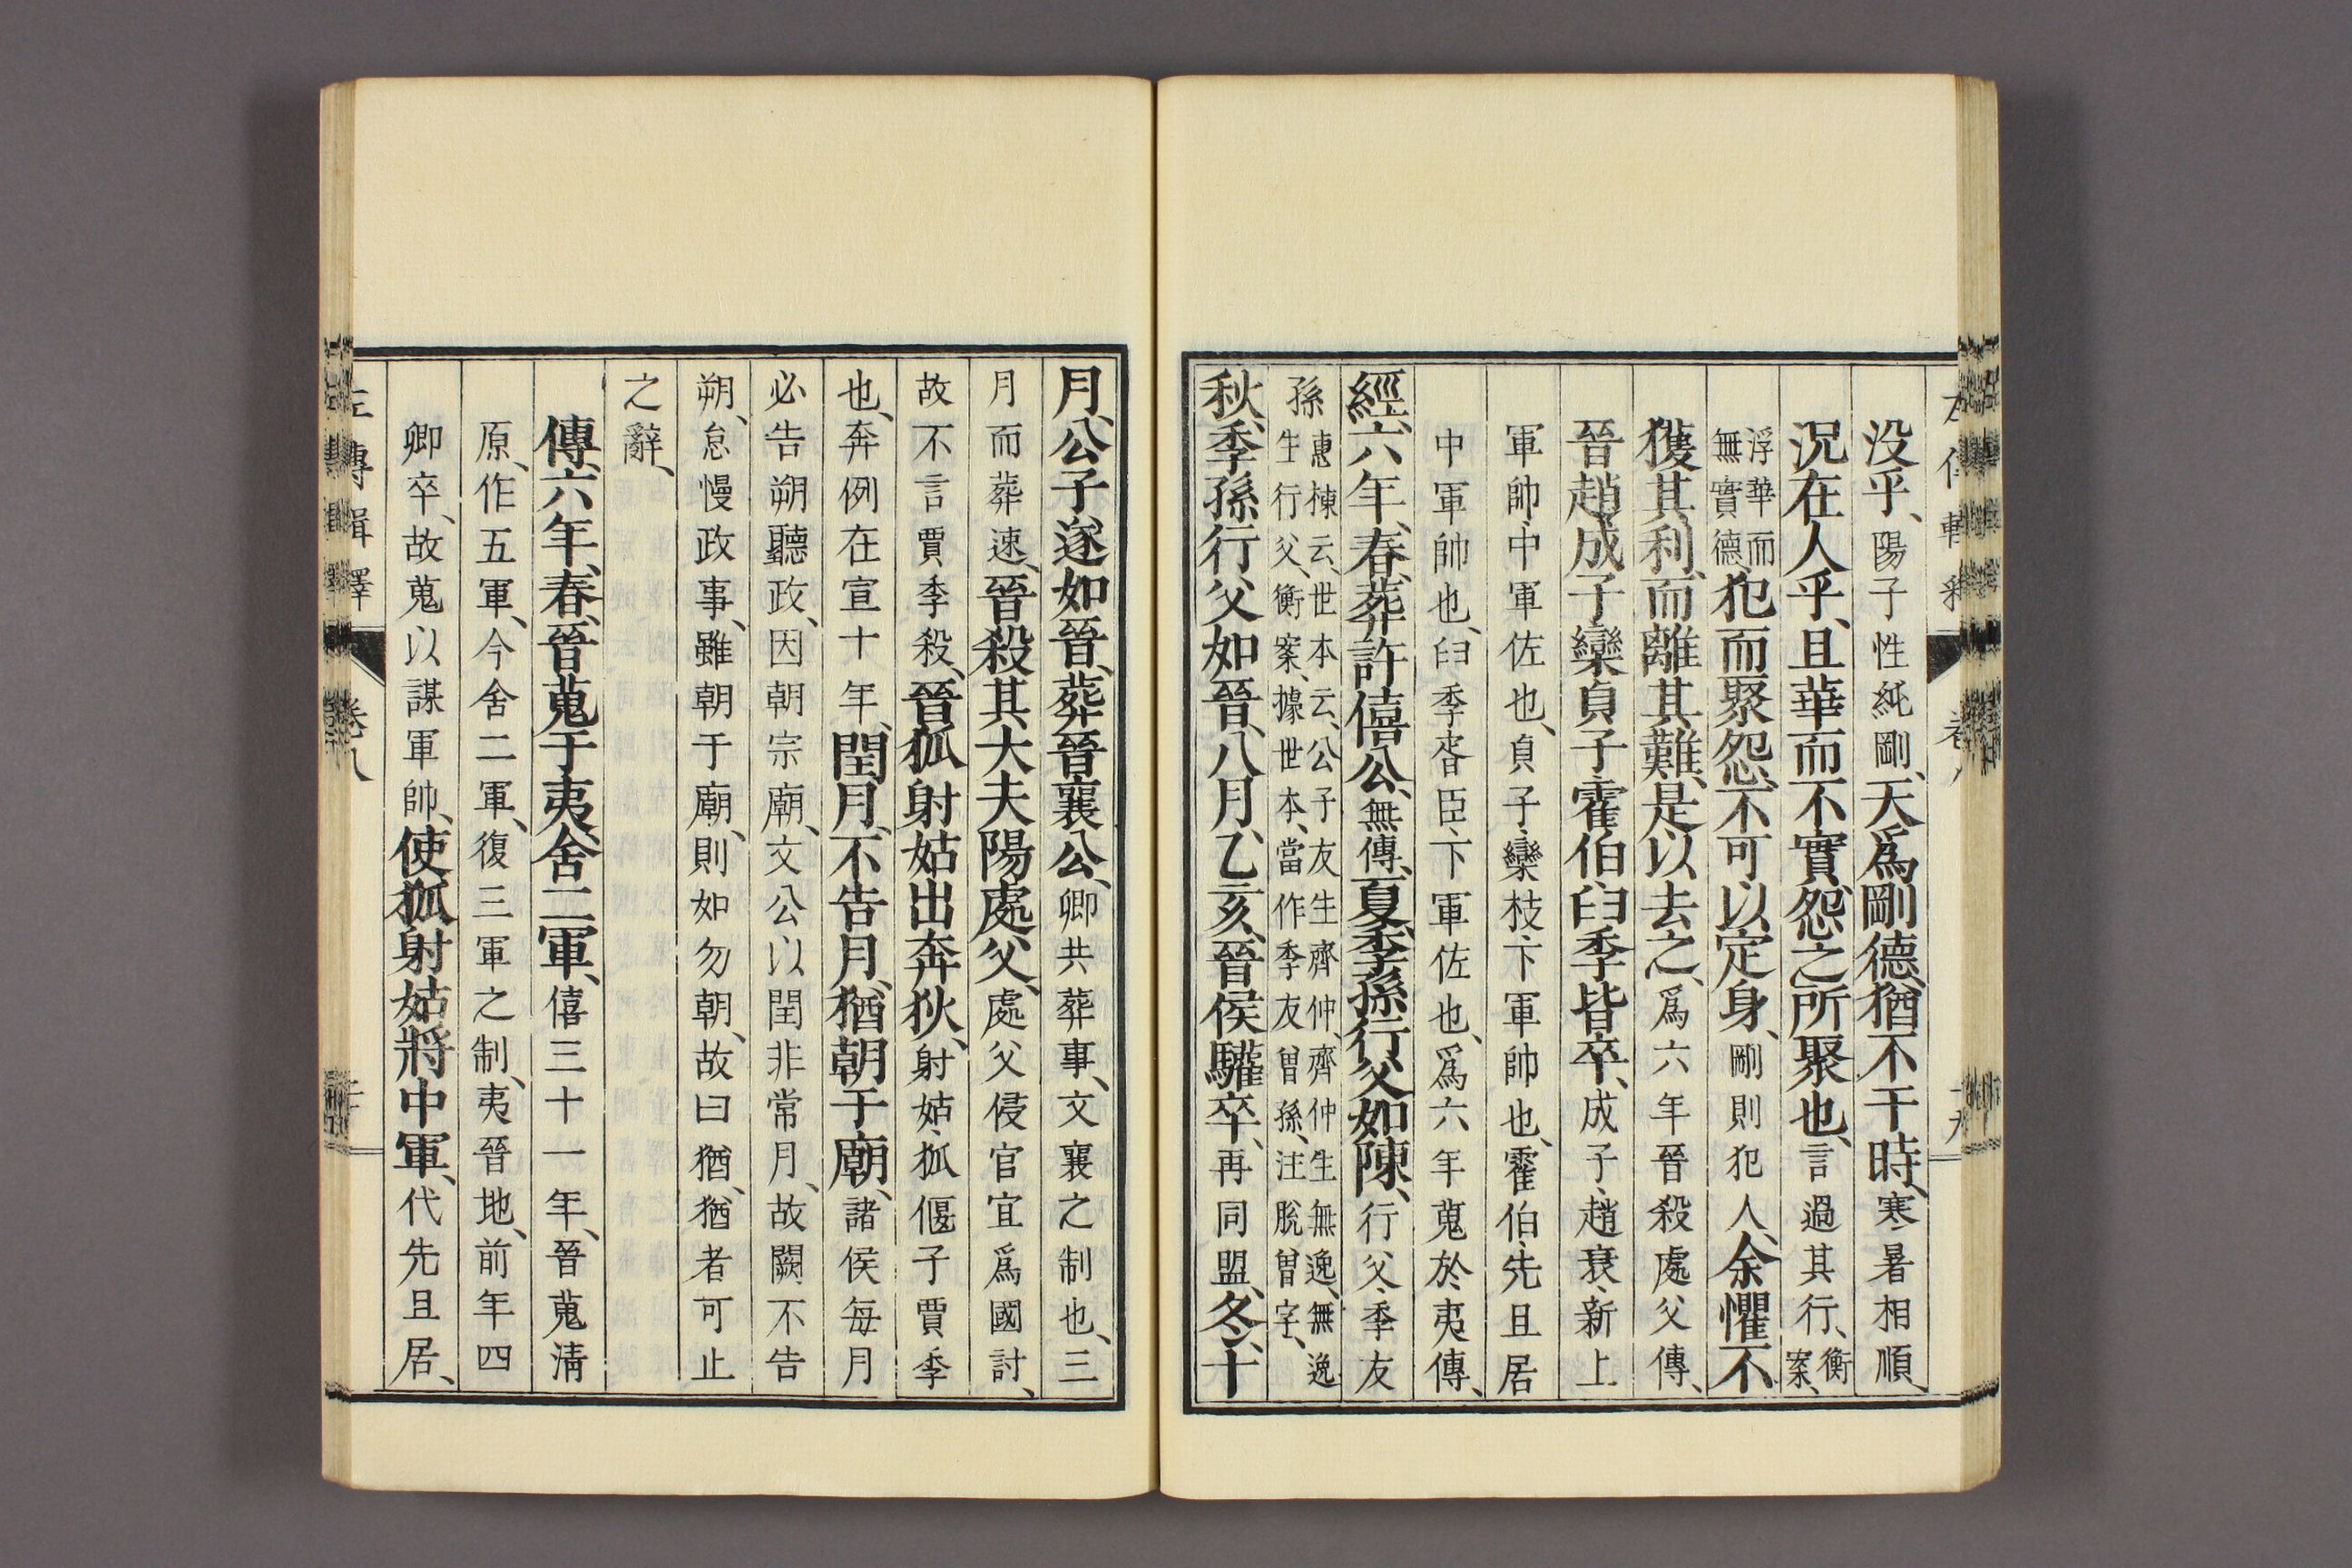 没乎、陽子性純剛、天爲剛德、猶不干時、寒暑相順、
況在人乎、且華而不實、怨之所聚也、言過其行、衡案、
浮華而無實德、犯而聚怨、不可以定身、剛則犯人、余懼不
獲其利、而離其難、是以去之、爲六年晉殺處父傳、
晉趙成子欒貞子霍伯臼季皆卒、成子、趙衰、新上
軍帥、中軍佐也、貞子、欒枝、下軍帥也、霍伯、先且居
中軍帥也、臼季、胥臣、下軍佐也、爲六年蒐於夷傳、
經、六年、春、葬許僖公、無傳、夏、季孫行父如陳、行父、季友
孫、惠棟云、世本云、公子友生齊仲、齊仲生無逸、無逸
生行父、衡案、據世本、當作季友曾孫、注脫曾字、
秋、季孫行父如晉、八月、乙亥、晉侯驩卒、再同盟、冬、十
月、公子遂如晉、葬晉襄公、卿共葬事、文襄之制也、三
月而葬速、晉殺其大夫陽處父、處父侵官宜爲國討、
故不言賈季殺、晉狐射姑出奔狄、射姑、狐偃子賈季
也、奔例在宣十年、閏月、不告月、猶朝于廟、諸侯每月
必告朔聽政、因朝宗廟、文公以閏非常月、故闕不告
朔、怠慢政事、雖朝于廟、則如勿朝、故曰猶、猶者可止
之辭、
傳、六年、春、晉蒐于夷、舍二軍、僖三十一年、晉蒐清
原、作五軍、今舍二軍、復三軍之制、夷晉地、前年四
卿卒、故蒐以謀軍帥、使狐射姑將中軍、代先且居、
左傳輯釋 卷八